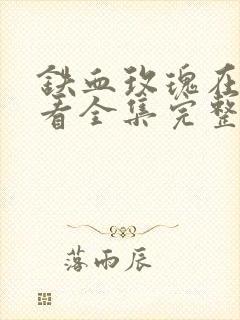 铁血玫瑰在
看全集完整
落雨辰